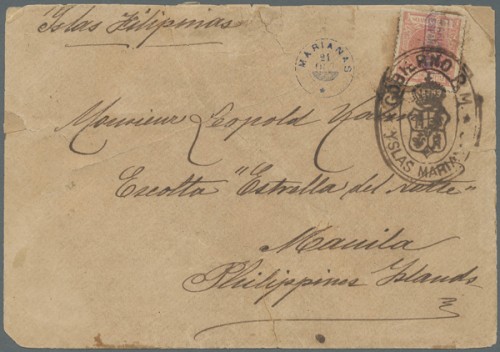 Islas Filipinas
MARIANAS
21
GOBIERNO P. M.
YSLAS MARIA
Monsieur Leopold
Escolta "Estrella del
Manila
Philippines Islands